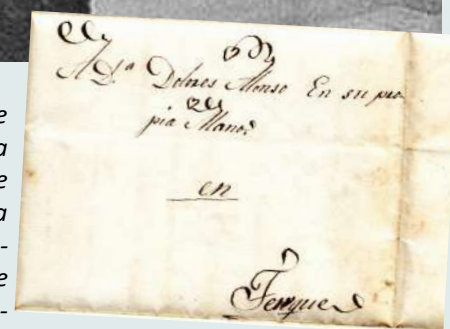 A D.ª Dolores Alonso En su pro-
pia Mano
en
e
a
e
a
-
e
-